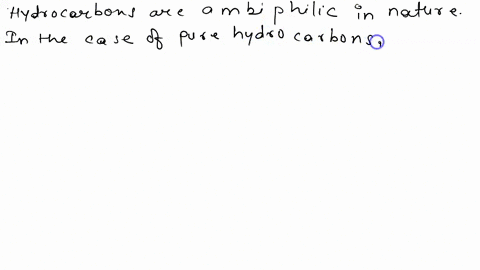 Hydrocarbons are ambiphilic in nature.
In the case of pure hydrocarbons,